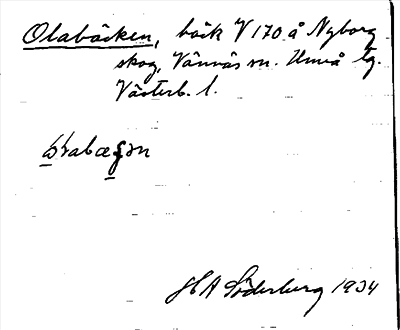 Olabäcken, bäck V 170 å Nyborg
skog, Vännäs sn. Umeå tg.
Västerb. l.
H A Söderberg 1934